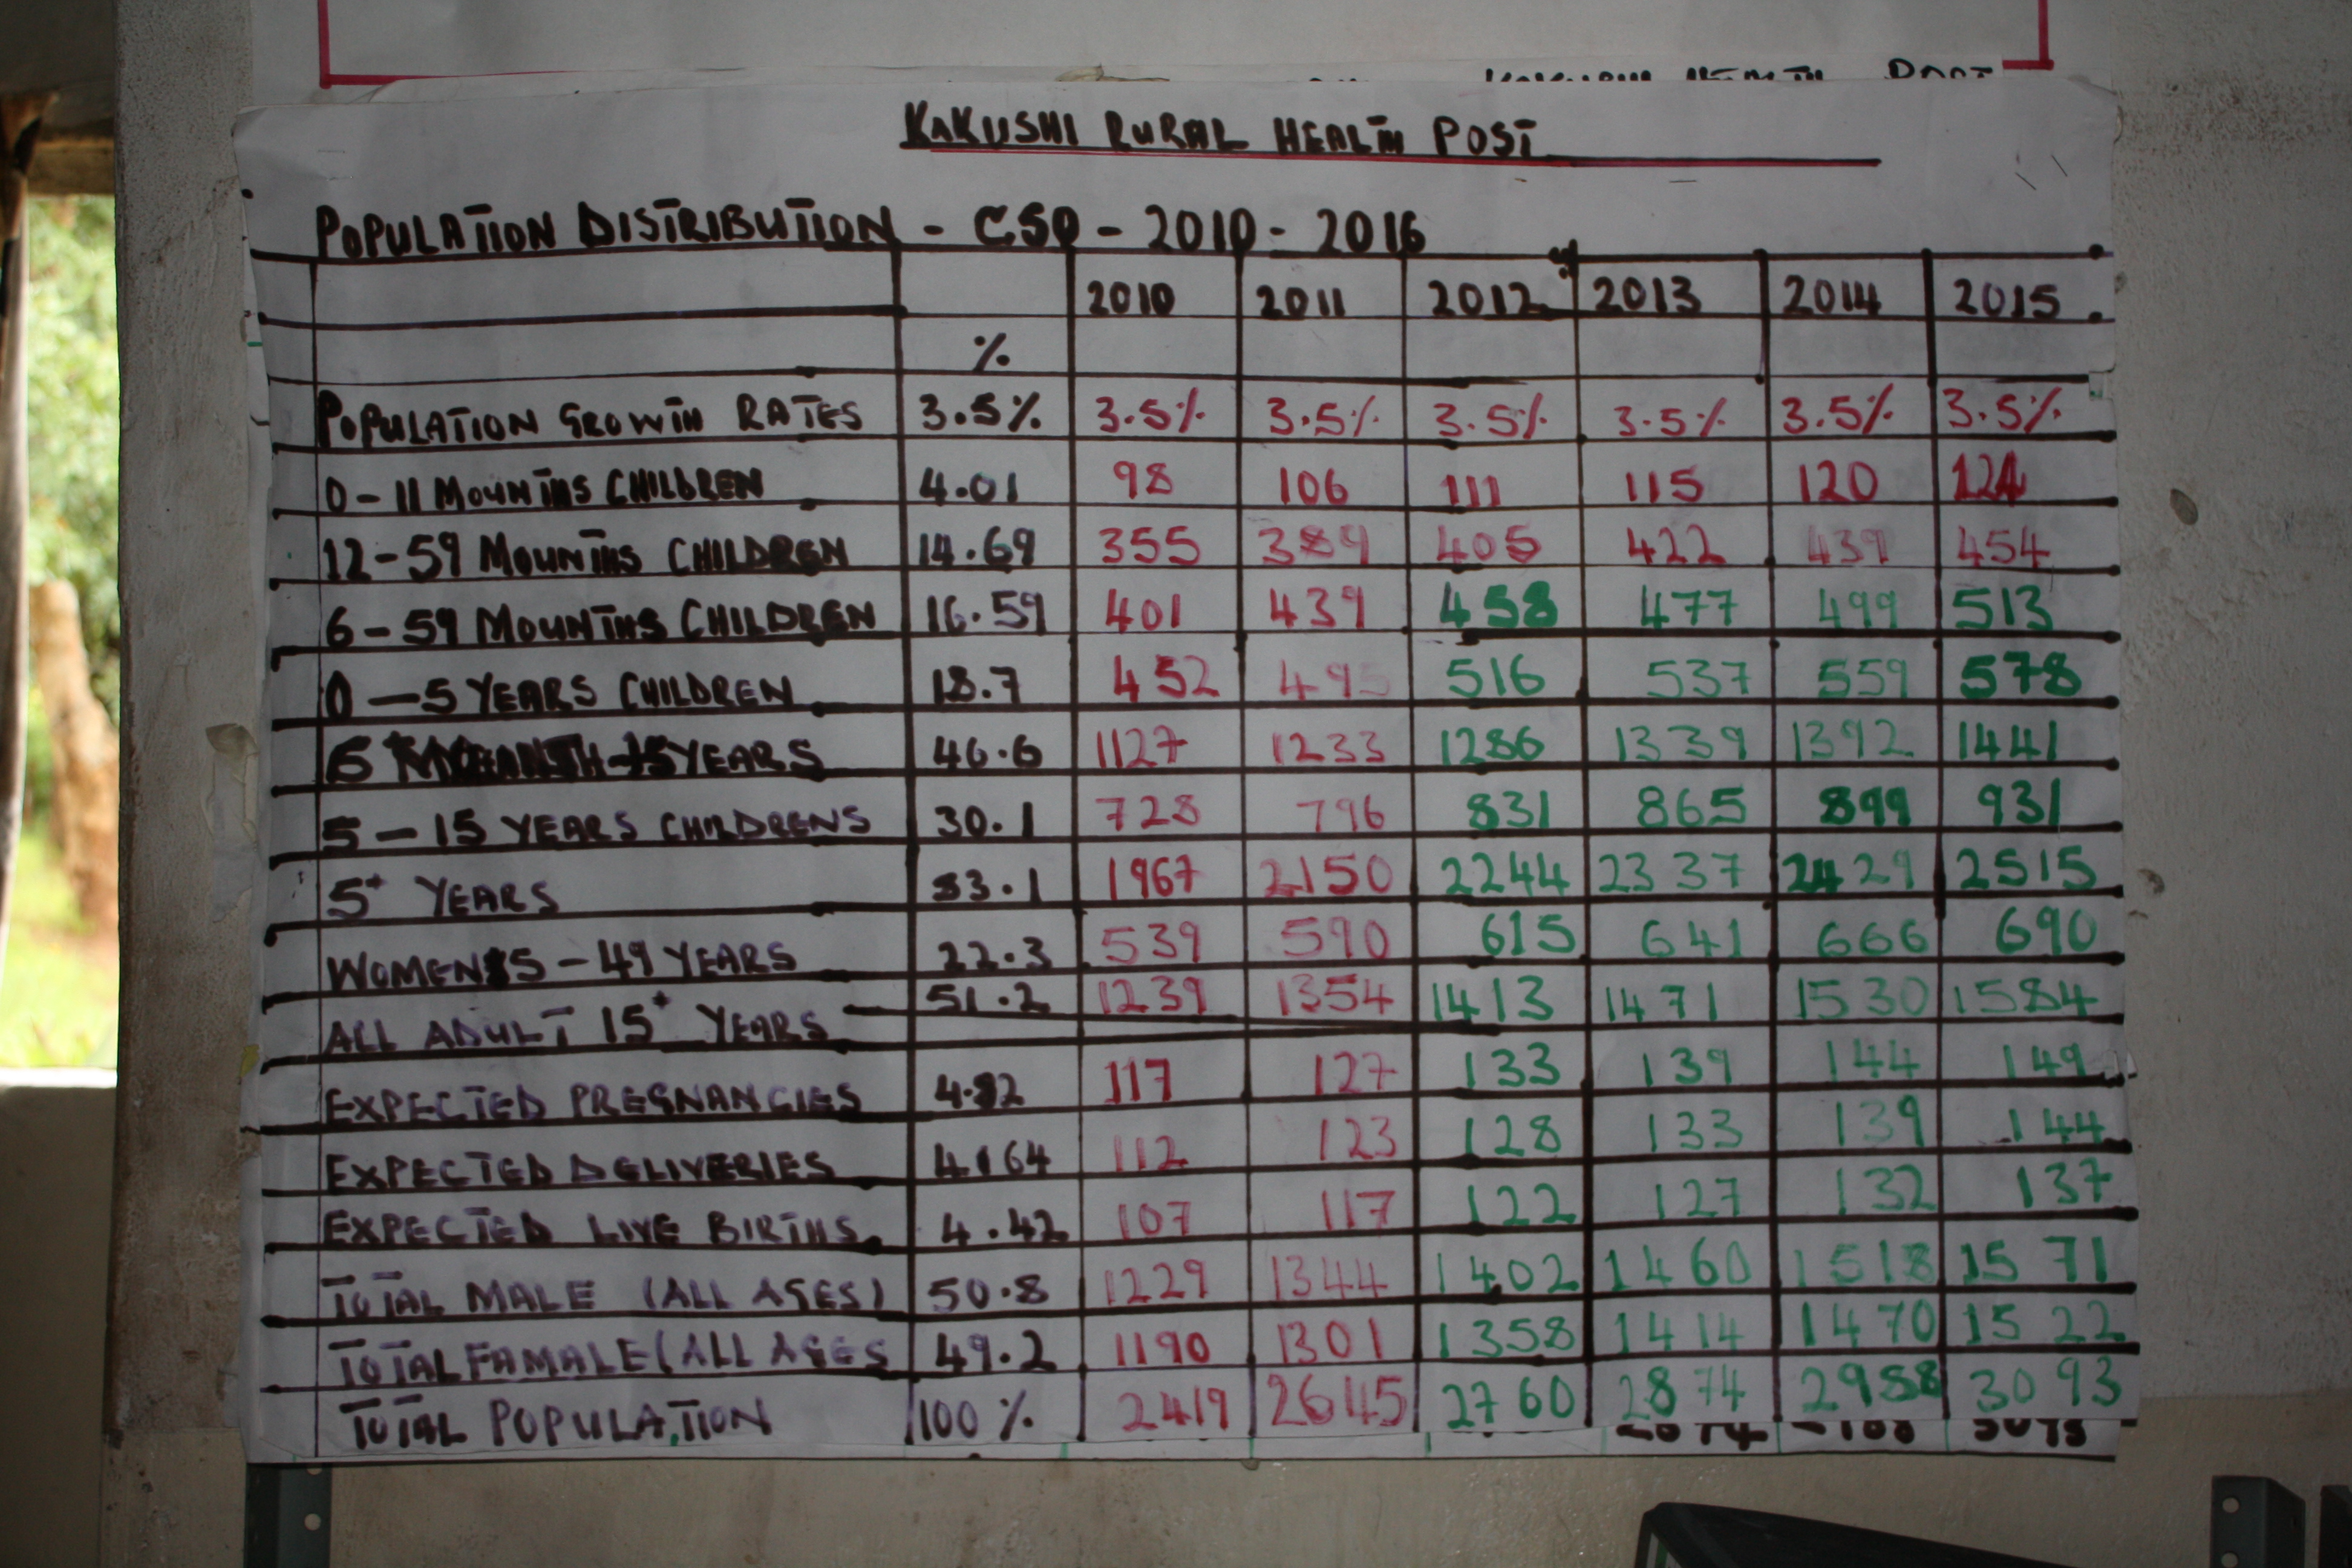 KAKUSHI RURAL HEALTH POST
POPULATION DISTRIBUTION - CSO - 2010 - 2016
2010 2011 2012 2013 2014 2015
%
POPULATION GROWTH RATES 3.5% 3.5% 3.5% 3.5% 3.5% 3.5% 3.5%
0-11 MOUNTHS CHILDREN 4.01 98 106 111 115 120 124
12-59 MOUNTHS CHILDREN 14.69 355 389 405 422 439 454
6-59 MOUNTHS CHILDREN 16.59 401 439 458 477 499 513
0-5 YEARS CHILDREN 18.7 452 495 516 537 559 578
6 YEARS 46.6 1127 1233 1286 1339 1392 1441
5-15 YEARS CHILDRENS 30.1 728 796 831 865 899 931
5+ YEARS 83.1 1967 2150 2244 2337 2429 2515
WOMEN 15-49 YEARS 22.3 539 590 615 641 666 690
ALL ADULT 15+ YEARS 51.2 1239 1354 1413 1471 1530 1584
EXPECTED PREGNANCIES 117 127 133 139 144 149
EXPECTED DELIVERIES 4164 112 123 128 133 139 144
EXPECTED LIVE BIRTHS. 4.42 107 117 122 127 132 137
TOTAL MALE (ALL AGES) 50.8 1229 1344 1402 1460 1518 1571
TOTAL FAMALE (ALL AGES 49.2 1190 1301 1358 1414 1470 1522
TOTAL POPULATION 100% 2419 2645 2760 2874 2988 3093